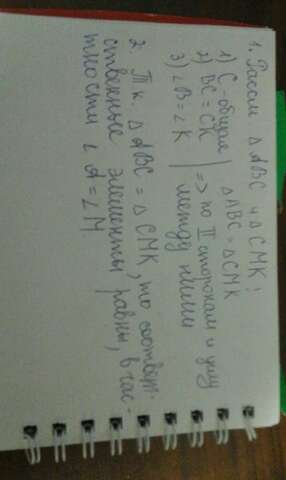 1. Рассм △ ABC и △ CMK:
1) C-общие
2) BC = CK | => по II сторонам и углу между ними △ ABC = △ CMK
3) ∠B = ∠K
2. Т.к. △ ABC = △ CMK, то соответ-
ственные элементы равны, в час-
тности ∠ A = ∠ M